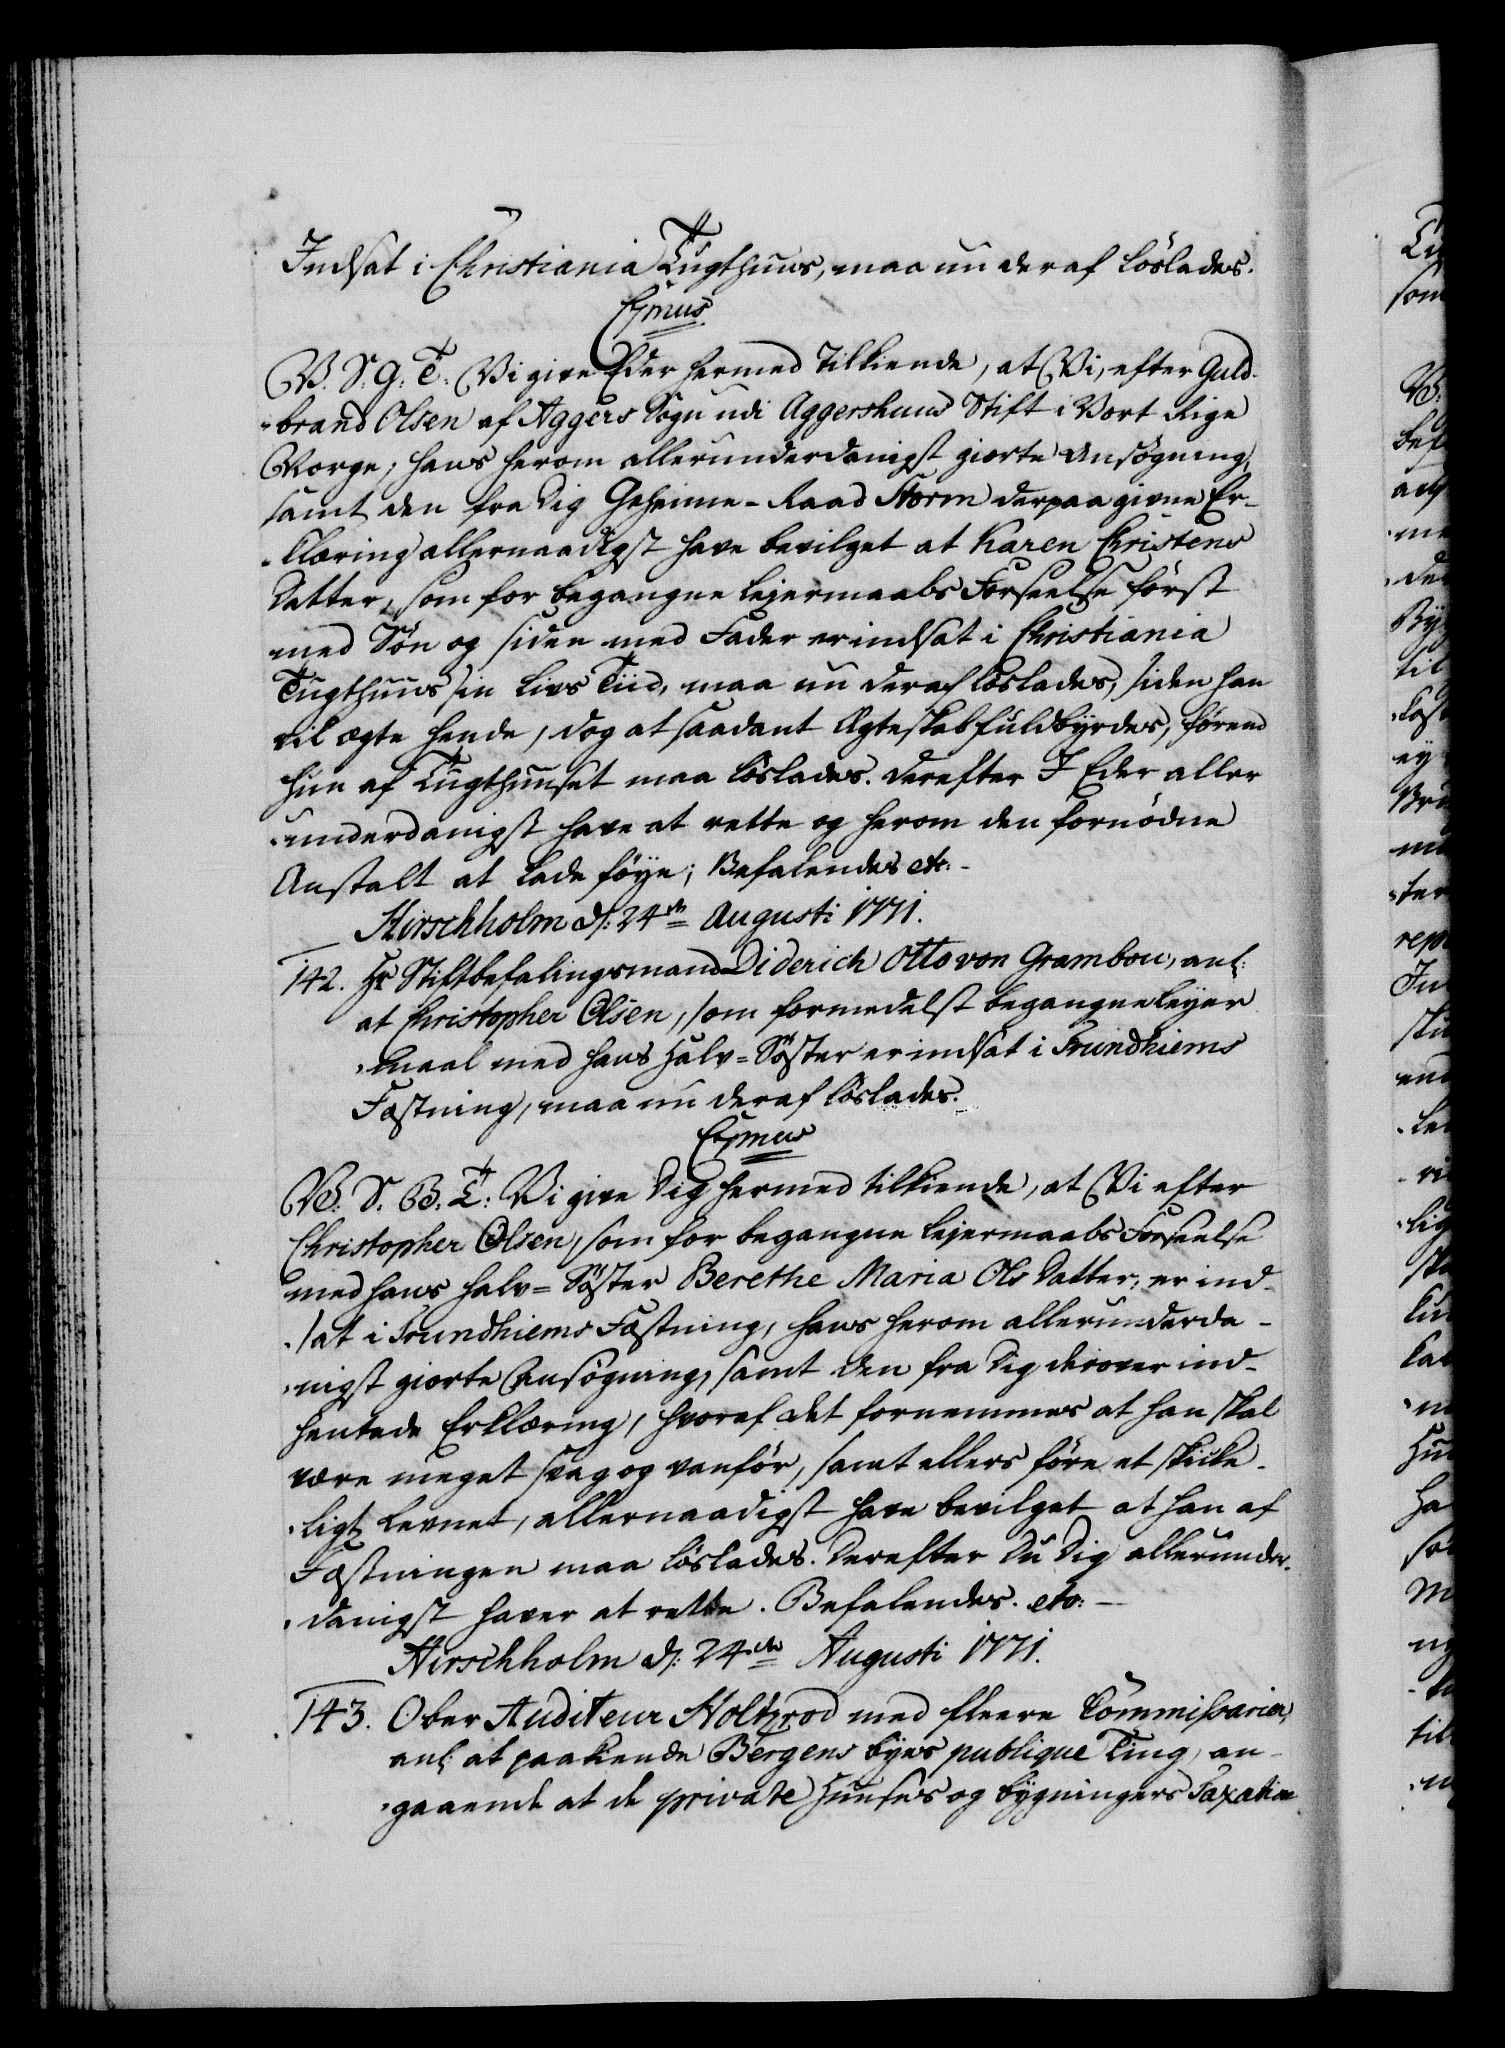 Indsat i Christiania Tugthuus, maa nu deraf löslades.
C7mus
V. S. G. T. Vi give Eder hermed tilkiende, at Vi, efter Guld-
brand Olsen af Aggers Sogn udi Aggershuus Stift i Vort Rige
Norge, hans herom allerunderdanigst giorte Ansögning,
samt den fra Dig Geheime-Raad Storm derpaa givne Er-
klæring allernaadigst have bevilget at Karen Christens
Datter, som for begangne Lejermaals Forseelse först
med Sön og siden med Fader er indsat i Christiania
Tugthuus sin Livs Tiid, maa nu deraf löslades, siden han
vil ægte hende, dog at saadant Ægteskab fuldbyrdes, förend
hun af Tugthuuset maa löslades. Derefter I Eder aller
underdanigst have at rette og herom den fornödne
Anstalt at lade föye; Befalendes etc:-
Hirschholm d: 24de Augusti 1771.
142. Hr Stiftbefalingsmand Diderich Otto von Grambou, anl:
at Christopher Olsen, som formedelst begangne Leyer
maal med hans Halv=Söster er indsat i Trundhiems
Fæstning, maa nu deraf löslades.
C7mus
V. S. G. T: Vi give Dig hermed tilkiende, at Vi efter
Christopher Olsen, som for begangne Lejermaals Forseelse
med hans halv=Söster Berethe Maria Ols Datter, er ind-
sat i Trundhiems Fæstning, hans herom allerunderda-
nigst giorte Ansögning, samt den fra Dig derover ind-
hentede Erklæring, hvoraf det fornemmes at han skal
være meget svag og vanför, samt ellers före et skikke-
ligt Levnet, allernaadigst have bevilget at han af
Fæstningen maa löslades. Derefter Du Dig allerunder-
danigst haver at rette. Befalendes. etc: -
Hirschholm d: 24de Augusti 1771.
143. Ober Auditeur Holtzrod med fleere Commissarier,
anl: at paakiende Bergens byes publique Ting, an-
gaaende at de private Huuses og bygningers Taxation